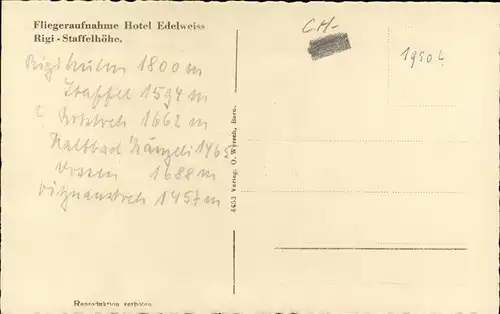 Fliegeraufnahme Hotel Edelweiss
Rigi - Staffelhöhe.
Rigikulm 1800 m
Staffel 1594 m
Rotstock 1662 m
Kaltbad Känzeli 1465 m
Dossen 1688 m
Vitznaustock 1457 m
4453 Verlag: O. Wyrsch, Bern.
CH-
1950 L
Reproduktion verboten